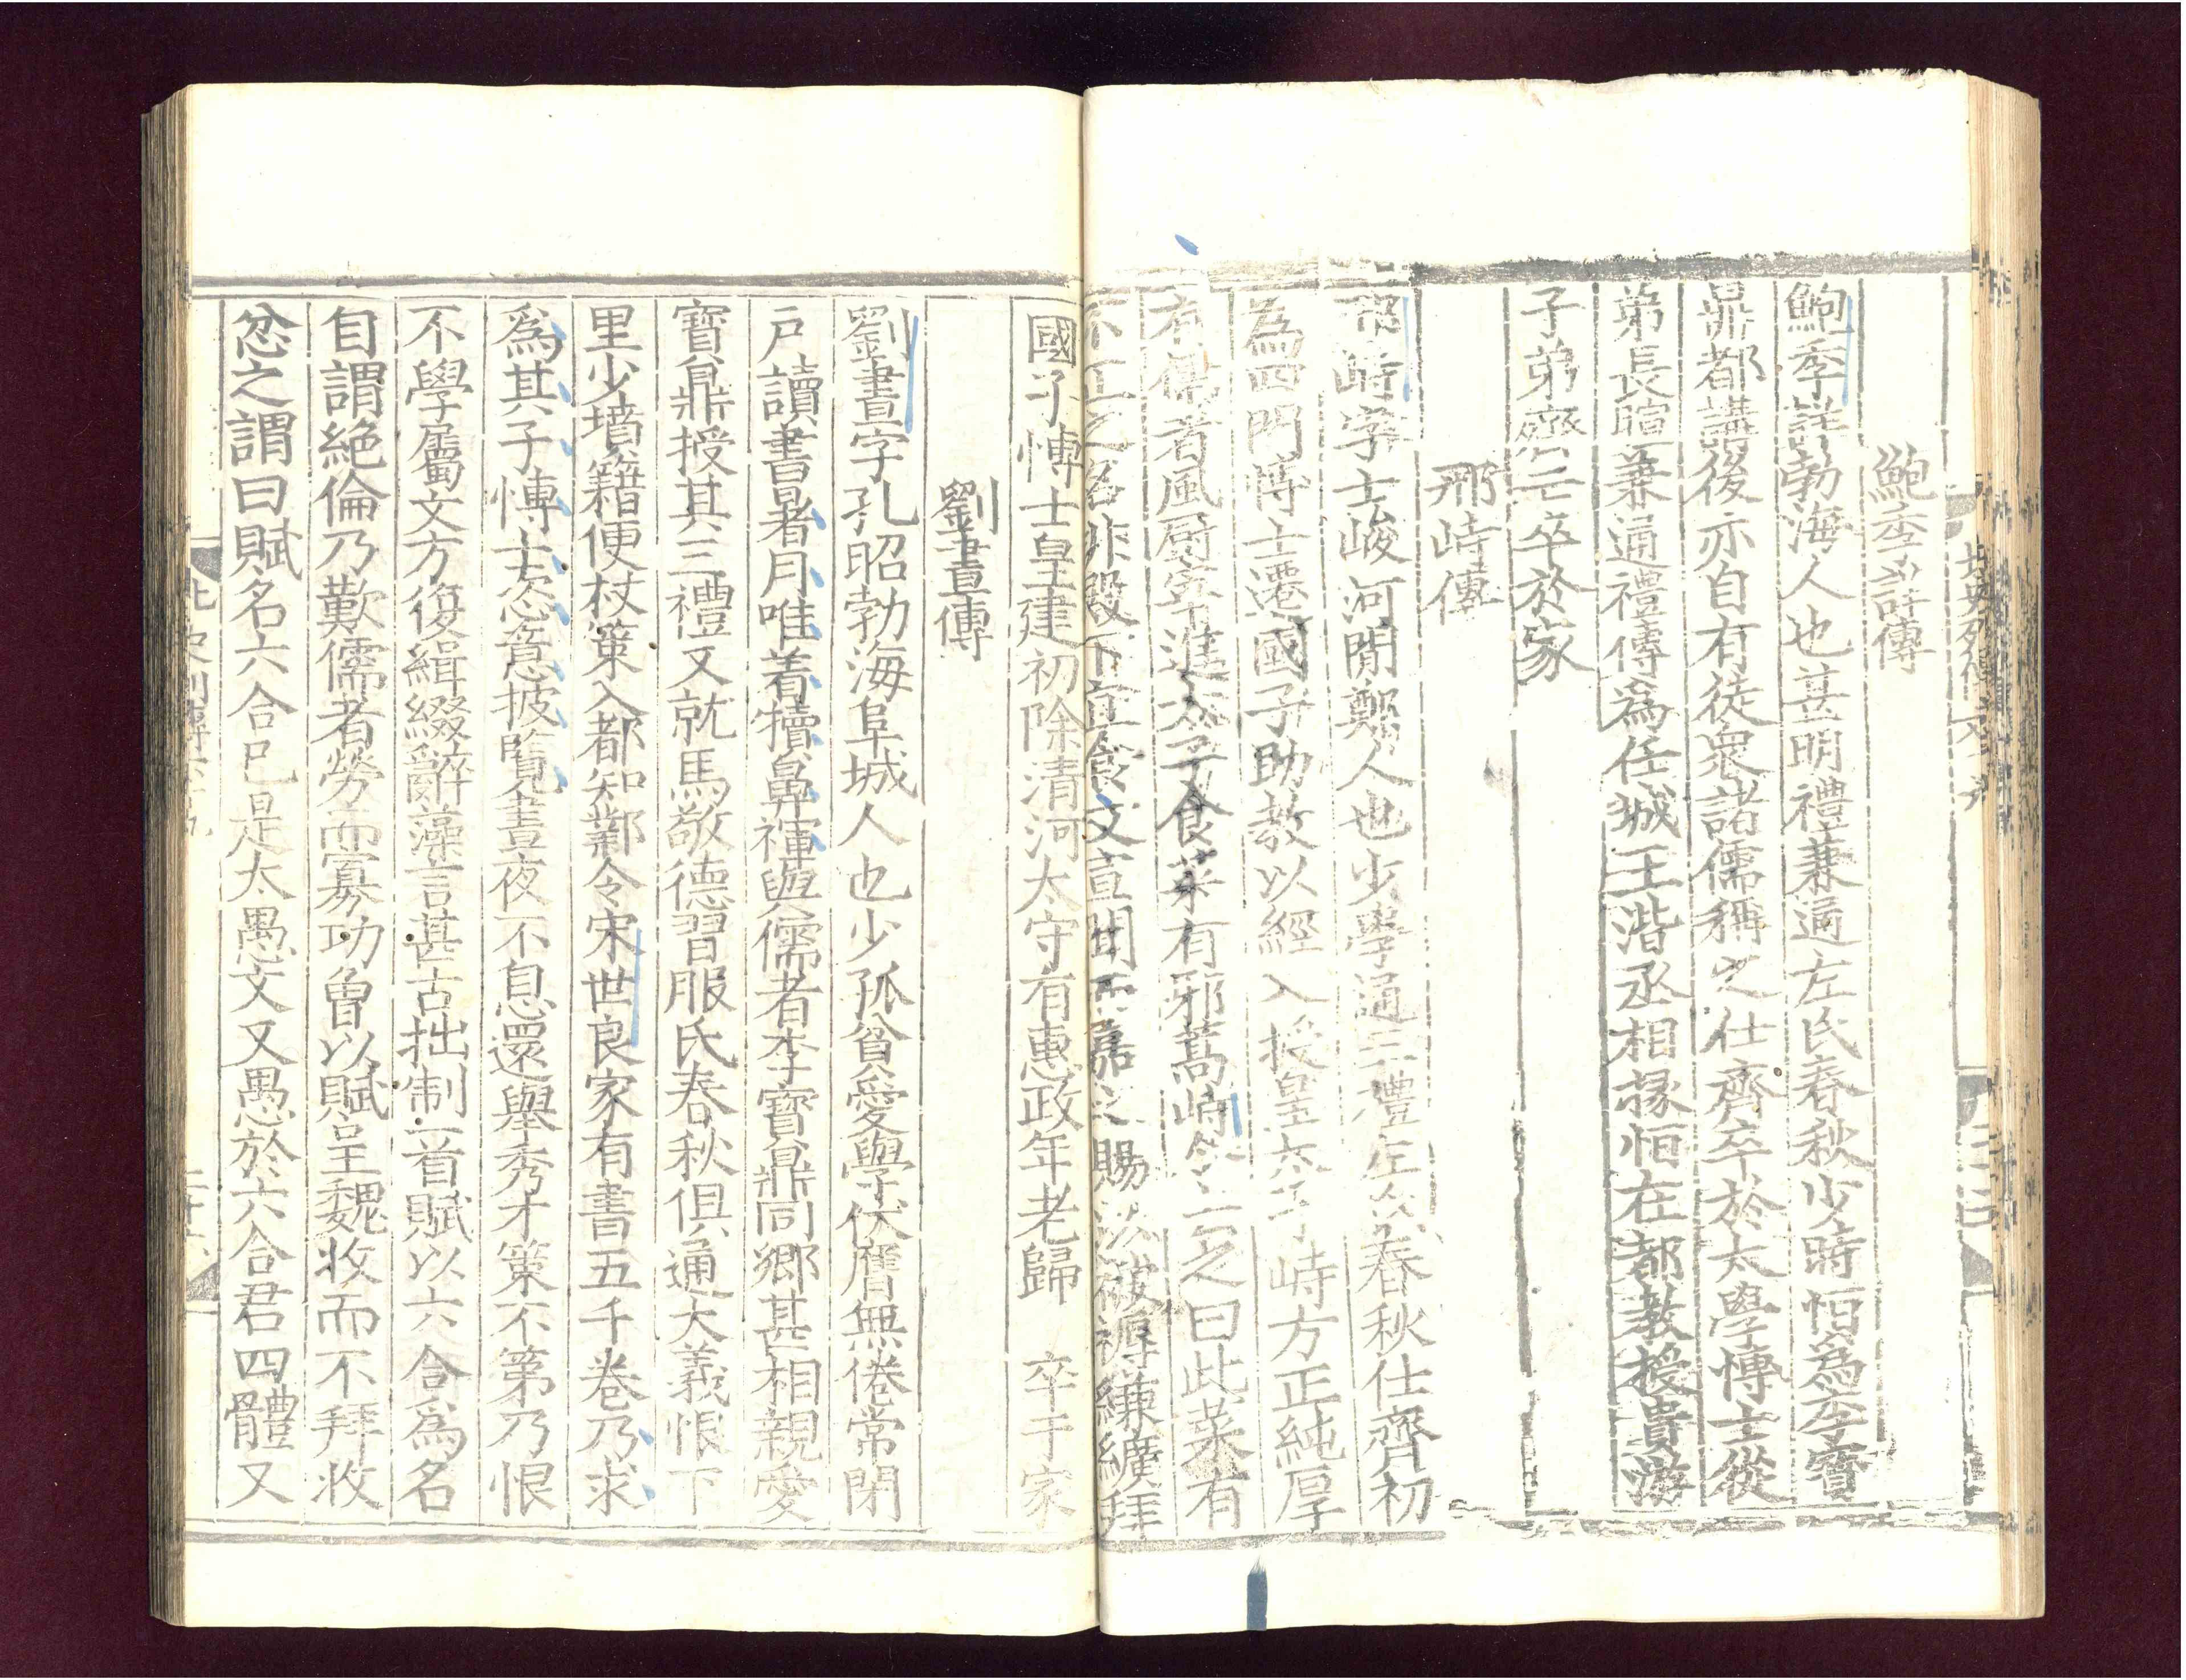 鮑季詳傳
鮑季詳勃海人也甚明禮兼通左氏春秋少時恒為李寶
鼎都講後亦自有徒衆諸儒稱之仕齊卒於太學博士從
弟長暄兼通禮傳爲任城王湝丞相掾恒在都教授貴游
子弟齊亡卒於家
邢峙傳
邢峙字士峻河間鄭人也少學通三禮左氏春秋仕齊初
為四門博士遷國子助教以經入授皇太子峙方正純厚
有儒者風厨宰進太子食菜有邪蒿峙令去之曰此菜有
不正之名非殿下宜食文宣聞而嘉之賜以被褥縑纊拜
國子博士皇建初除清河太守有惠政年老歸 卒于家
劉晝傳
劉晝字孔昭勃海阜城人也少孤貧愛學伏膺無倦常閉
戶讀書暑月唯着犢鼻褌與儒者李寶鼎同鄉甚相親愛
寶鼎授其三禮又就馬敬德習服氏春秋俱通大義恨下
里少墳籍便杖策入都知鄴令宋世良家有書五千卷乃求
爲其子博士恣意披覽晝夜不息還舉秀才策不第乃恨
不學屬文方復緝綴辭藻言甚古拙制一首賦以六合爲名
自謂絶倫乃歎儒者勞而寡功曾以賦呈魏收而不拜收
忿之謂曰賦名六合已是太愚文又愚於六合君四體又